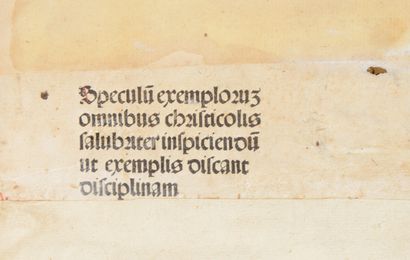 Speculū exemploruꝫ
omnibus christicolis
salubriter inspiciendū
ut exemplis discant
disciplinam